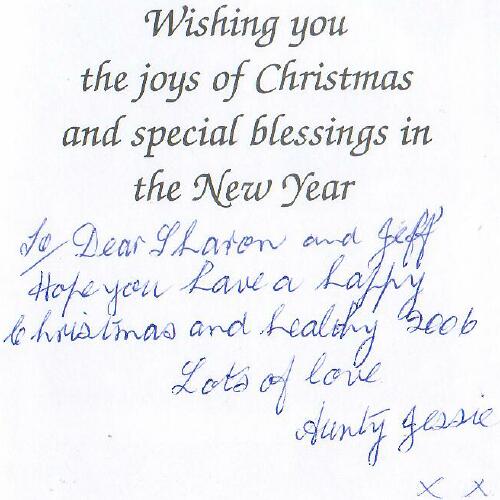 Wishing you
the joys of Christmas
and special blessings in
the New Year
To Dear Sharon and Jeff
Hope you have a happy
Christmas and healthy 2006
Lots of love
Aunty Jessie
x x